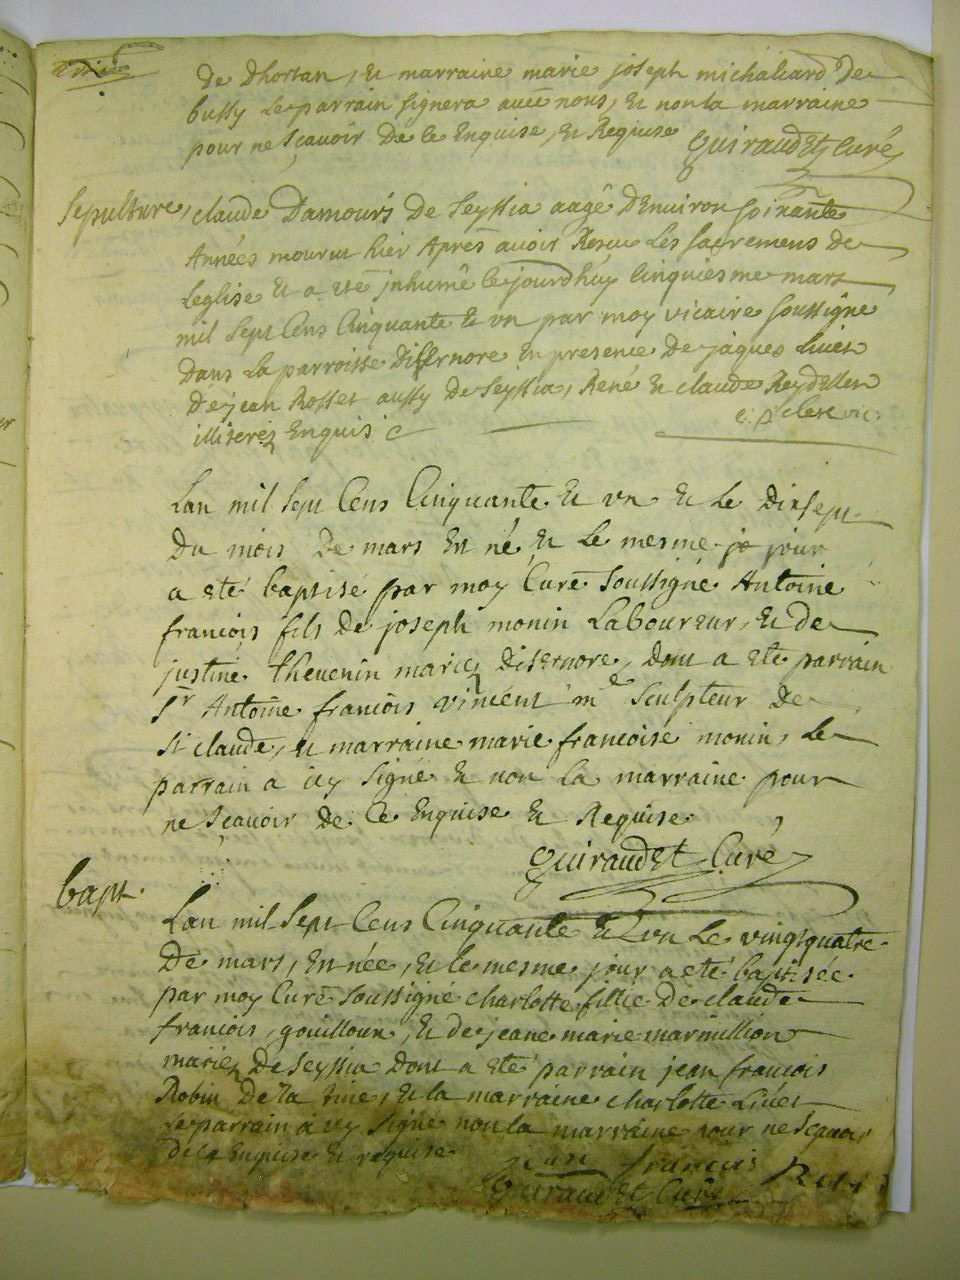 de dhortan, et marraine marie joseph michaleard de
bussy le parrain signera avec nous, et non la marraine
pour ne sçavoir de ce Enquise, et Requise
Guiraudet Curé
Sepulture, claude Damours de Seyssia aagé d'Environ soixante
Années mourut hier Apres avoir Reçu les sacremens de
L'eglise et a eté jnhumé ce jourdhuy Cinquiesme mars
mil Sept Cens Cinquante et vn par moy vicaire soussigné
dans la parroisse disernore En presence de jaques Livet
de jean Rosset aussy de Seyssia, René et claude Reydellet
illiterez Enquis
clerc vic.
Lan mil sept Cens Cinquante et vn et le dixsept
du mois de mars Est né et le mesme jo jour
a eté baptisé par moy Curé soussigné Antoine
francois fils de joseph monin Laboureur, et de
justine thevenin mariez disernore, dont a eté parrain
sr Antoine francois vincent me Sculpteur de
St claude, et marraine marie francoise monin, Le
parrain a icy signé et non la marraine pour
ne sçavoir de Ce Enquise et Requise
Guiraudet Curé
bapt.
Lan mil Sept Cens Cinquante et vn Le vingtquatre
de mars, Est née, et le mesme jour a eté baptisée
par moy Curé soussigné charlotte fillie de claude
francois gouilloux, et de jeane marie marmillion
mariez de Seyssia dont a eté parrain jean francois
Robin de la rine, et la marraine charlotte Livet
Le parrain a icy signé non la marraine pour ne sçavoir
de ce Enquise et requise
jean francois
Guiraudet Curé